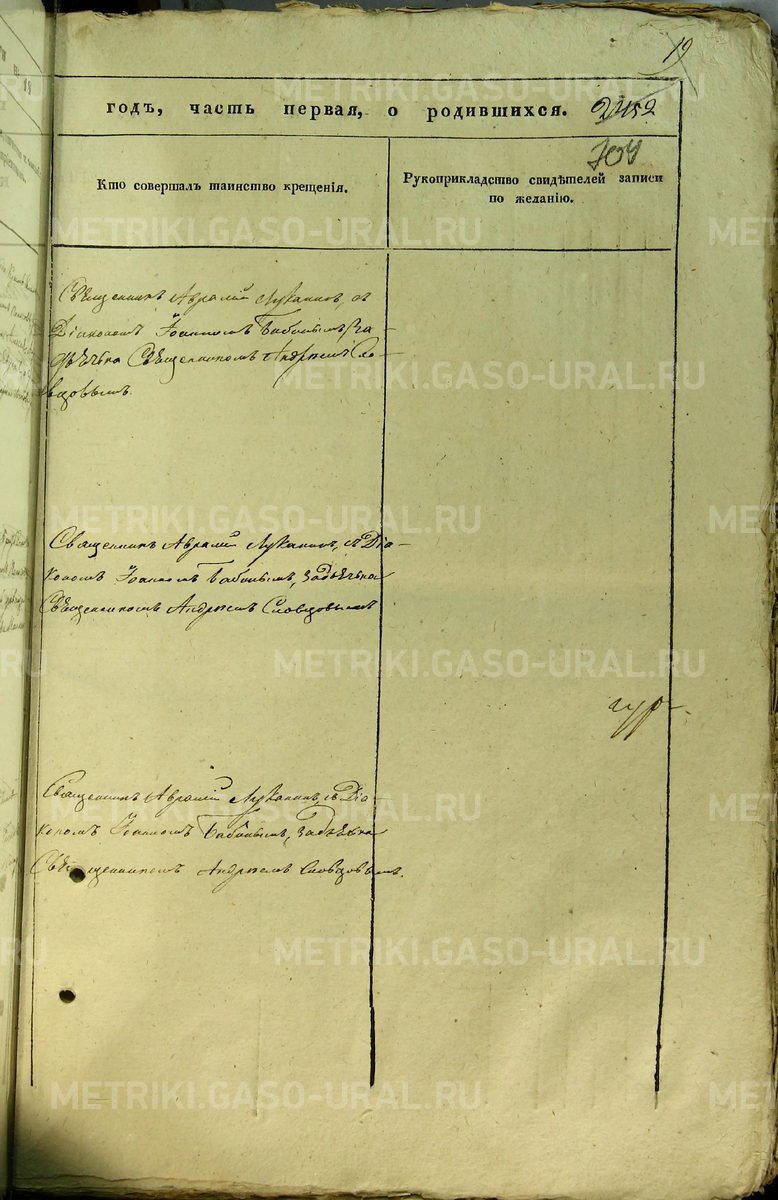 19
годъ, часть первая, о родившихся. 2452
704
Кто совершалъ таинство крещенія.
Рукоприкладство свидѣтелей записи
по желанію.
Священникъ Аврамій Луканинъ, съ
Діакономъ Іоанномъ Бабинымъ, за
дьячька Священникомъ Андреемъ Сло-
вцовымъ.
Священникъ Аврамій Луканинъ, съ Діа-
кономъ Іоанномъ Бабинымъ, задьячька
Священникомъ Андреемъ Словцовымъ
Священникъ Аврамій Луканинъ, съ Діа
кономъ Іоанномъ Бабинымъ, задьячька
Священникомъ Андреемъ Словцовымъ.
METRIKI.GASO-URAL.RU